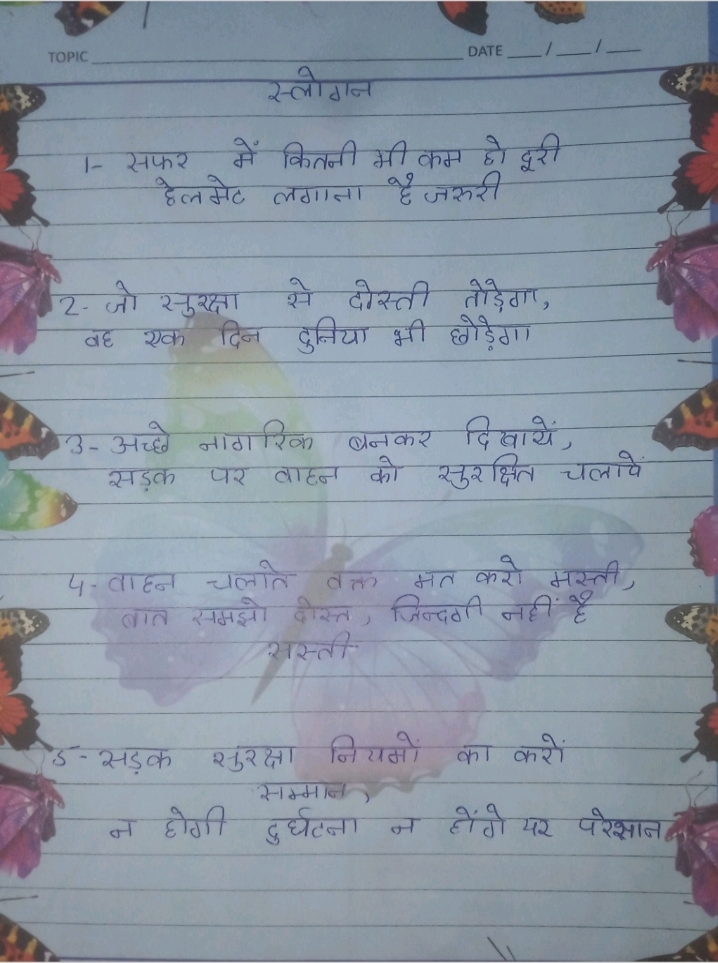 TOPIC DATE / /
स्लोगन
1- सफर में कितनी भी कम हो दूरी
हेलमेट लगाना है जरूरी
2- जो सुरक्षा से दोस्ती तोड़ेगा,
वह एक दिन दुनिया भी छोड़ेगा
3- अच्छे नागरिक बनकर दिखायें,
सड़क पर वाहन को सुरक्षित चलायें
4- वाहन चलाते वक्त मत करो मस्ती,
बात समझो दोस्त, जिन्दगी नहीं है
सस्ती
5- सड़क सुरक्षा नियमों का करों
सम्मान,
न होगी दुर्घटना न होंगे पर परेशान